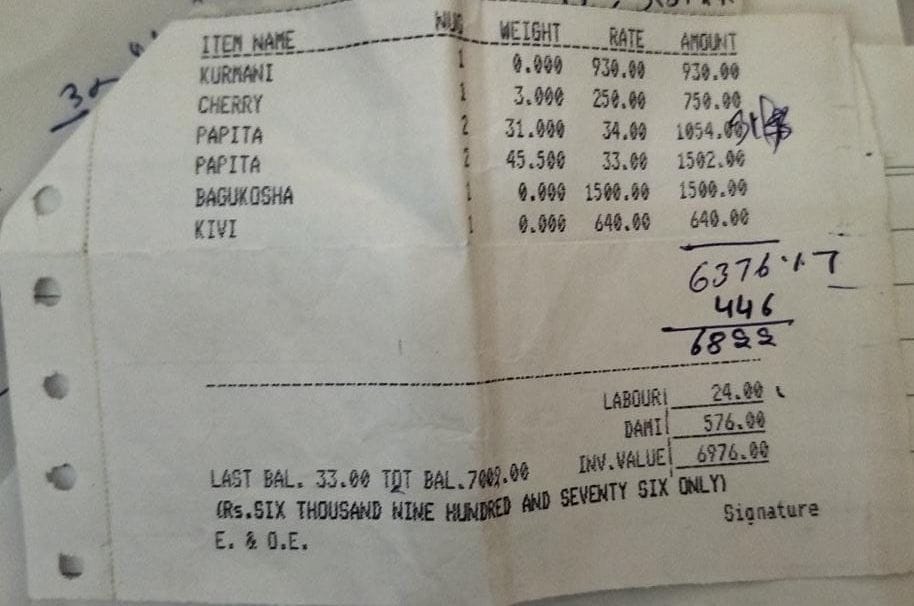 ITEM NAME NUG WEIGHT RATE AMOUNT
KURMANI 1 0.000 930.00 930.00
CHERRY 1 3.000 250.00 750.00
PAPITA 2 31.000 34.00 1054.00
PAPITA 2 45.500 33.00 1502.00
BAGUKOSHA 1 0.000 1500.00 1500.00
KIVI 1 0.000 640.00 640.00
6376 ·/· 7
446
6822
LABOUR 24.00
DAMI 576.00
INV.VALUE 6976.00
LAST BAL. 33.00 TOT BAL.7009.00
(Rs.SIX THOUSAND NINE HUNDRED AND SEVENTY SIX ONLY)
Signature
E. & O.E.